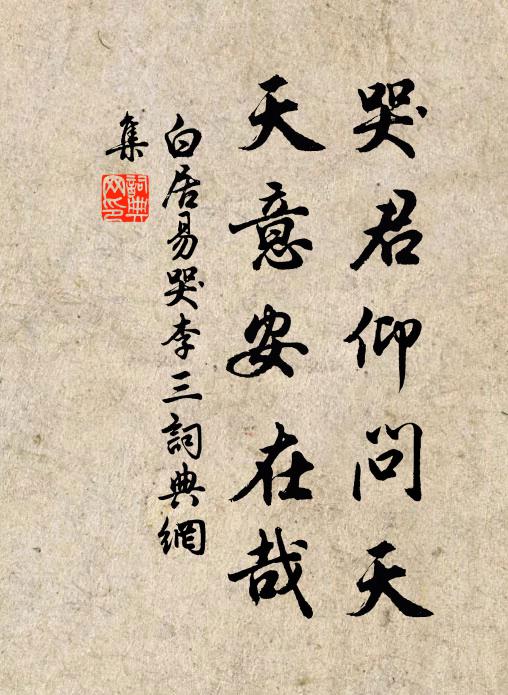 哭君仰問天
天意安在哉
白居易哭李三詞典網
集
詞典
网印